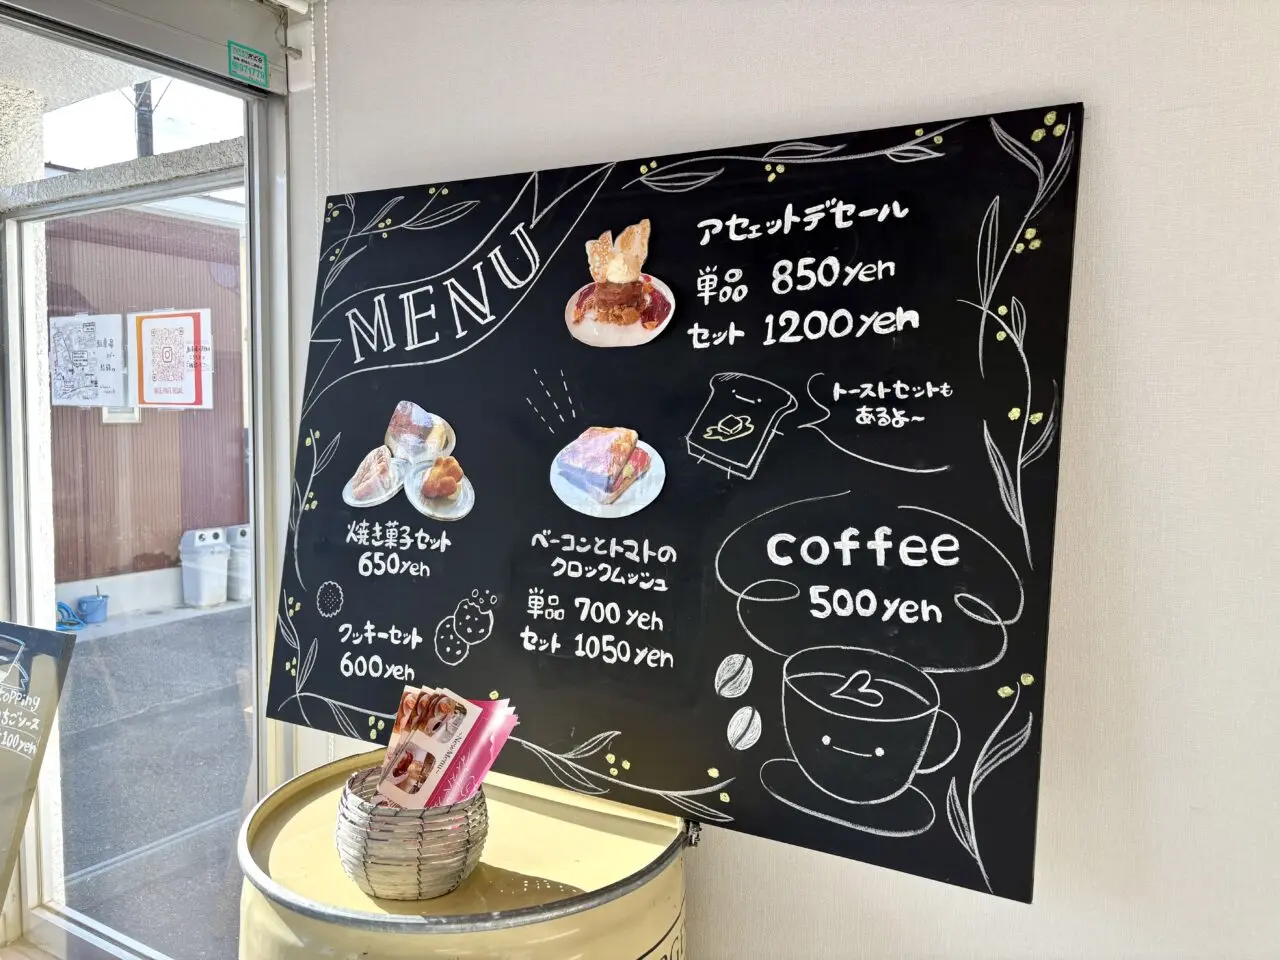 MENU
アセェットデセール
単品 850yen
セット 1200yen
トーストセットも
あるよ～
焼き菓子セット
650yen
クッキーセット
600yen
ベーコンとトマトの
クロックムッシュ
単品 700yen
セット 1050yen
coffee
500yen
topping
ちごソース
100yen
~New Menu~